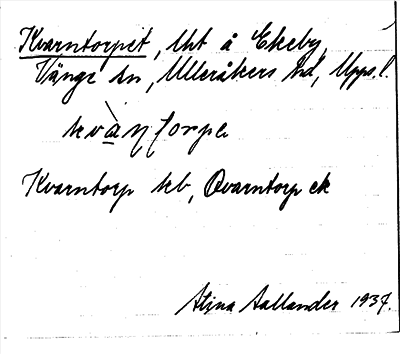 Kvarntorpet, lht å Ekeby,
Vänge sn, Ulleråkers hd, Upps. l.
Kvarntorp kb, Qvarntorp ek
Stina Aallander 1937.